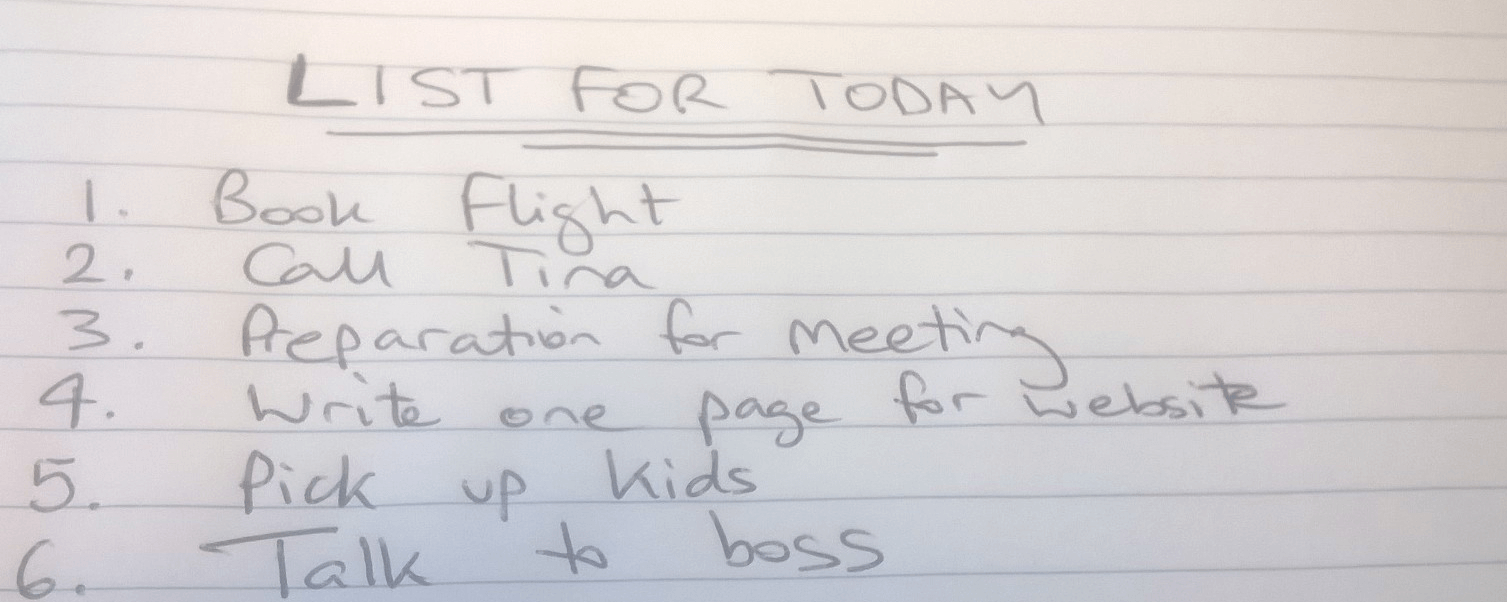 LIST FOR TODAY
1. Book Flight
2. Call Tina
3. Preparation for Meeting
4. Write one page for website
5. Pick up kids
6. Talk to boss